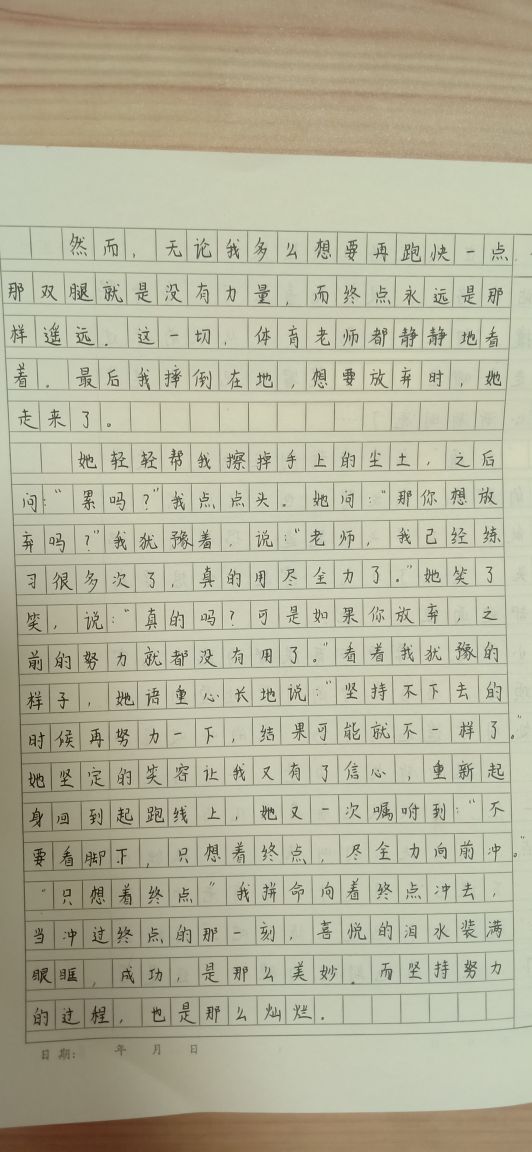 然而，无论我多么想要再跑快一点
那双腿就是没有力量，而终点永远是那
样遥远．这一切，体育老师都静静地看
着．最后我摔倒在地，想要放弃时，她
走来了。
她轻轻帮我擦掉手上的尘土，之后
问：“累吗？”我点点头．她问：“那你想放
弃吗？”我犹豫着，说：“老师，我已经练
习很多次了，真的用尽全力了。”她笑了
笑，说：“真的吗？可是如果你放弃，之
前的努力就都没有用了。”看着我犹豫的
样子，她语重心长地说：“坚持不下去的
时候再努力一下，结果可能就不一样了。”
她坚定的笑容让我又有了信心，重新起
身回到起跑线上，她又一次嘱咐到：“不
要看脚下，只想着终点，尽全力向前冲。”
“只想着终点”我拼命向着终点冲去，
当冲过终点的那一刻，喜悦的泪水装满
眼眶，成功，是那么美妙．而坚持努力
的过程，也是那么灿烂．
日期： 年 月 日